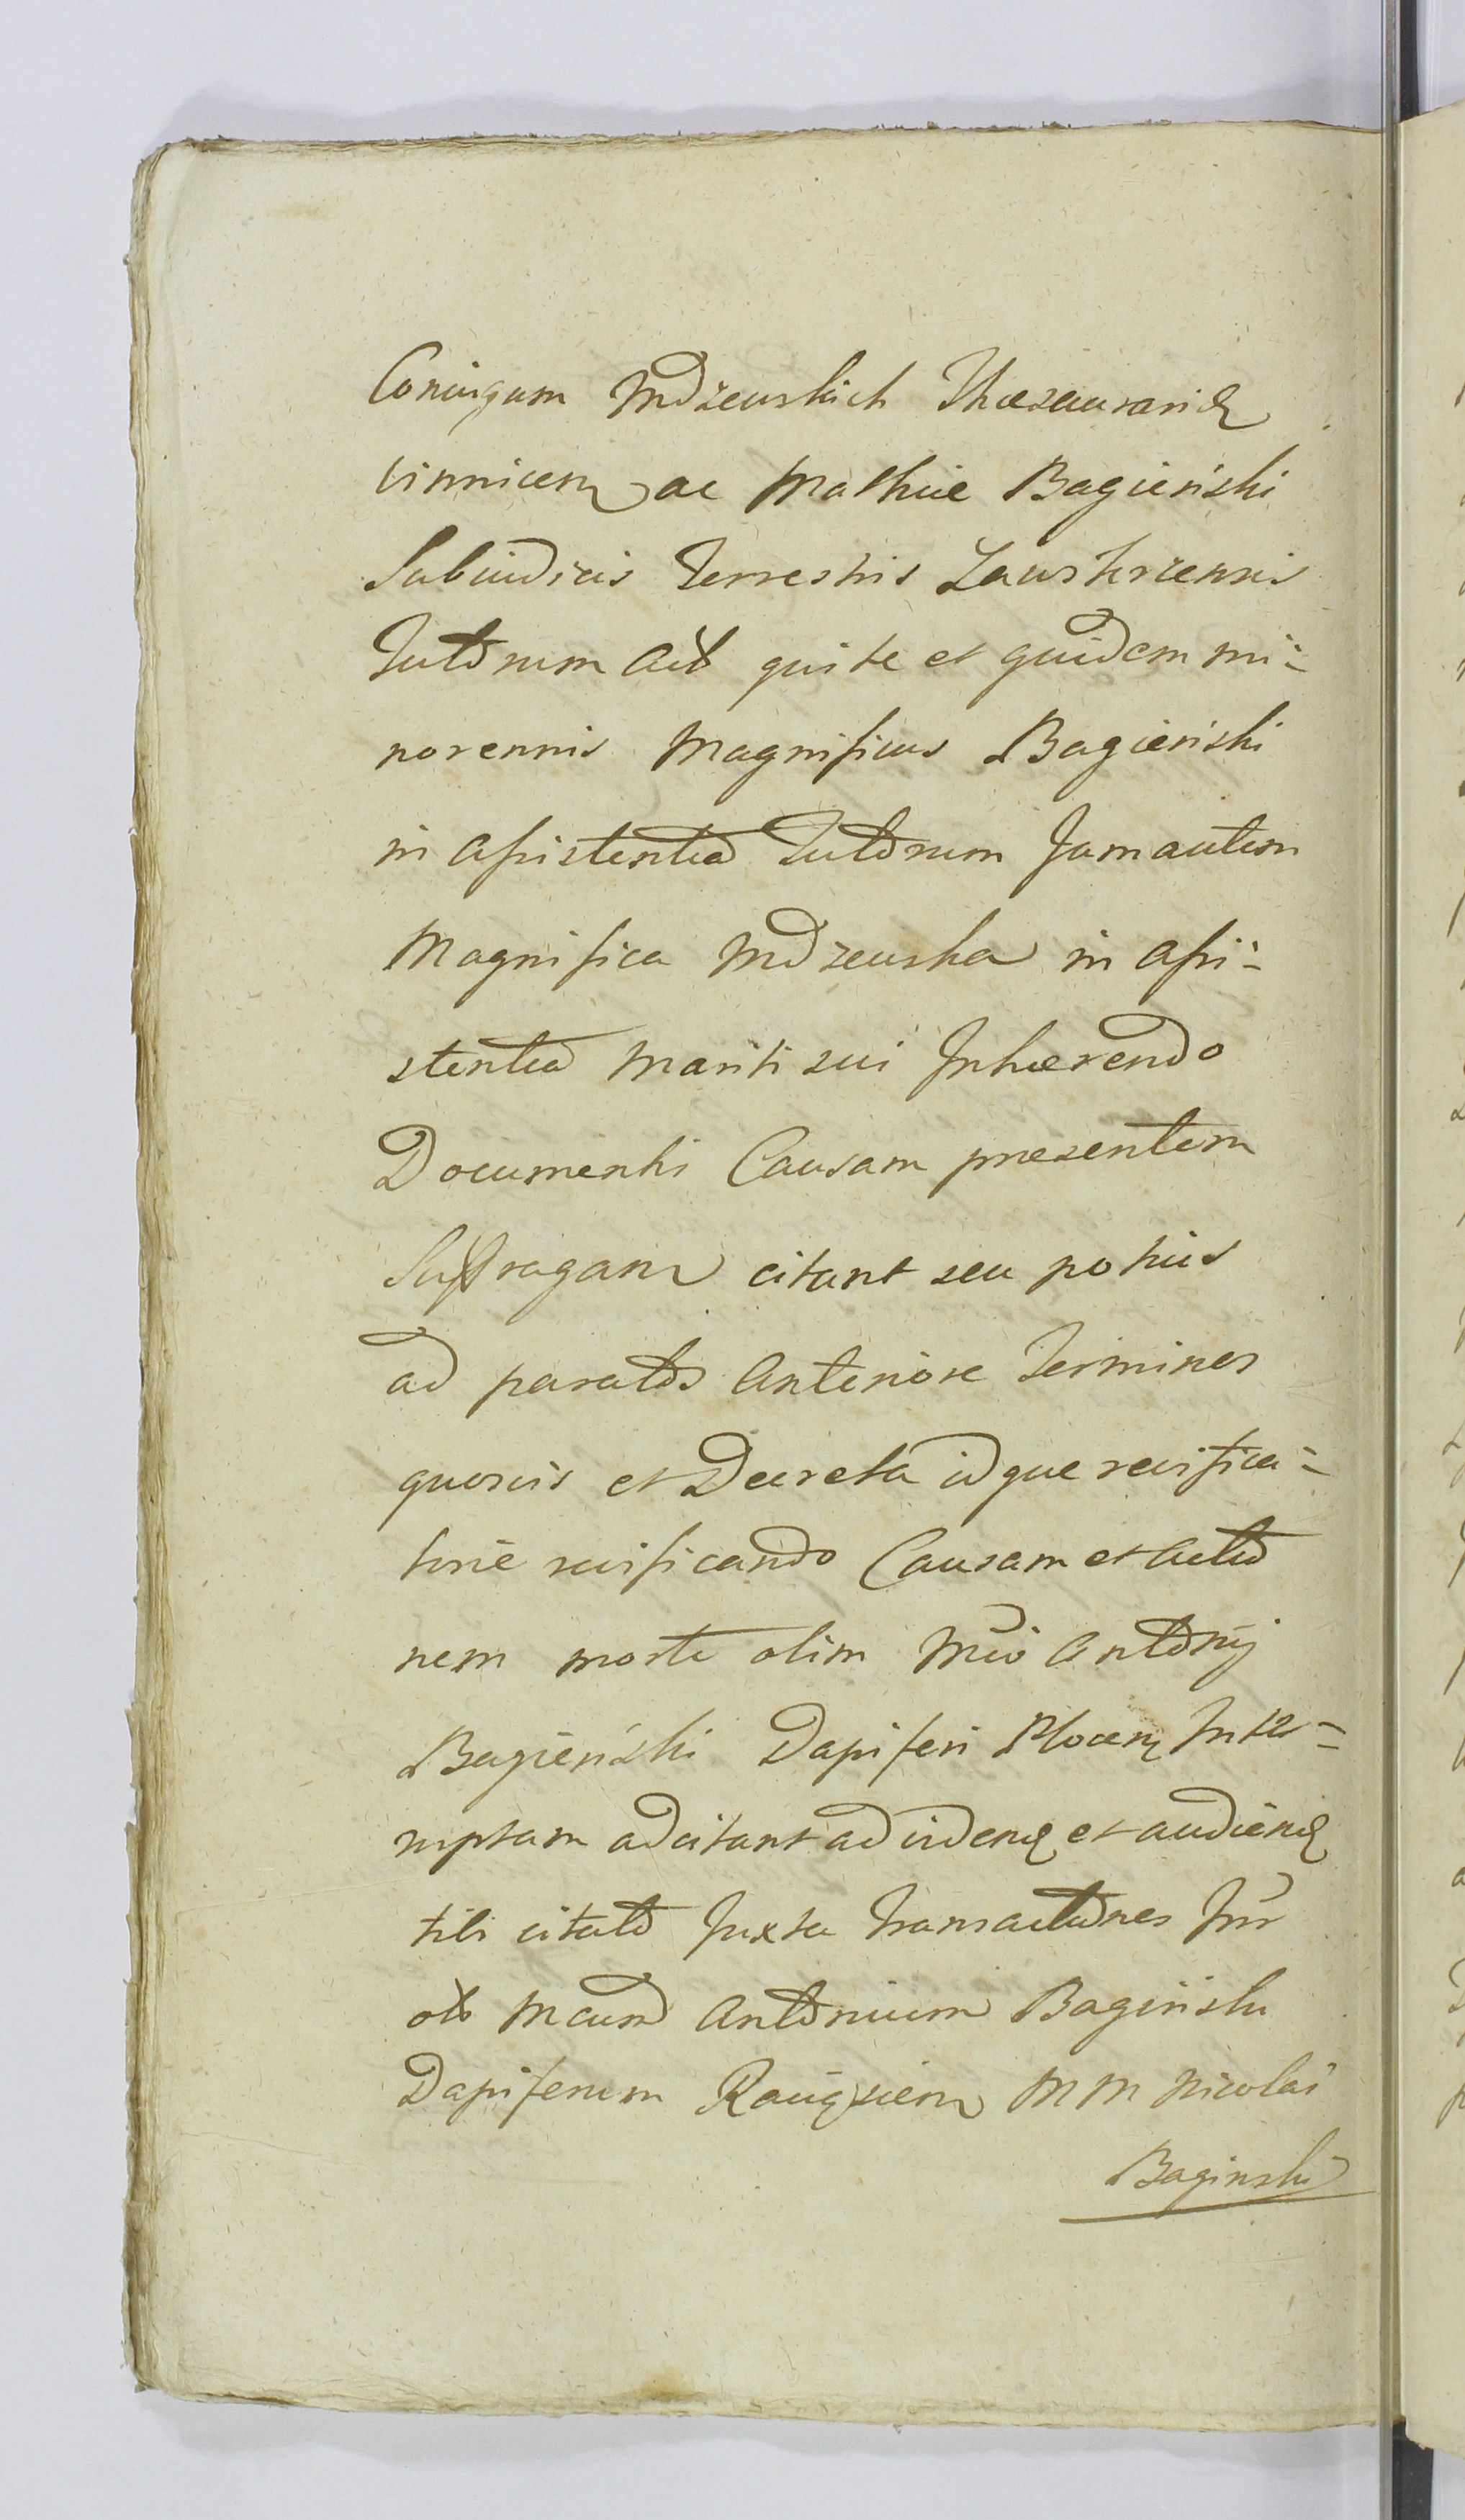 Coniugum Mdzewskich Thesaurarid
Vinnicen ac Mathie Bagieński
Subiudicis Terrestris Zawskrzensis
Tutorum Act quite et quidem mi=
norennis Magnificus Bagieński
in assistentia Tutorum Jam autem
Magnifica Mdzewska in assi=
stentia Mariti sui Inhærendo
Documentis Causam præsentem
Suffragan citant seu potius
ad paratos Anteriore Termines
quosvis et Decreta idque reißica=
torie reißicando Causam et Actio
nem morte olim Mci Antonij
Bagieński Dapiferi Plocen Inte=
ruptam adcitant ad videnq et audienq
tibi citato Juxta Transactiones Inr
ob Mcum Antonium Bagiński
Dapiferum Racigzien MM Nicolai
Baginski